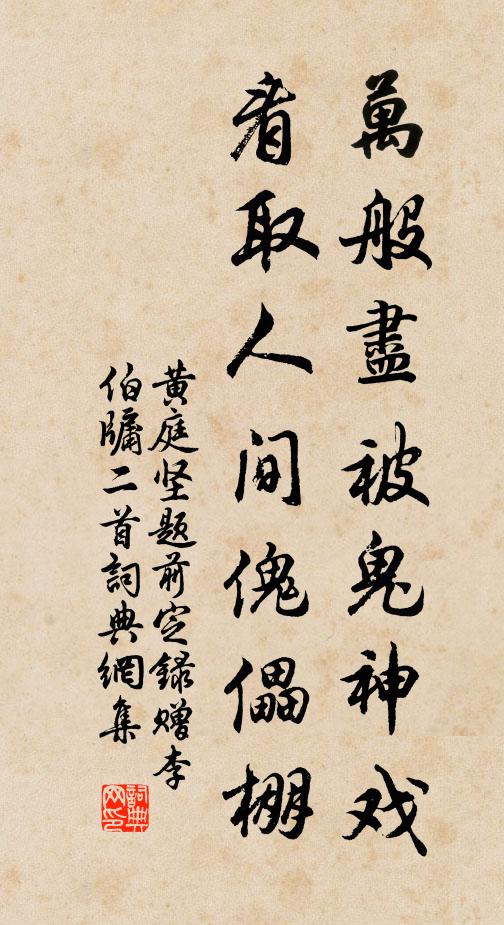 萬般盡被鬼神戏
看取人間傀儡棚
黄庭坚題前定録赠李
伯牖二首詞典網集
詞典网印